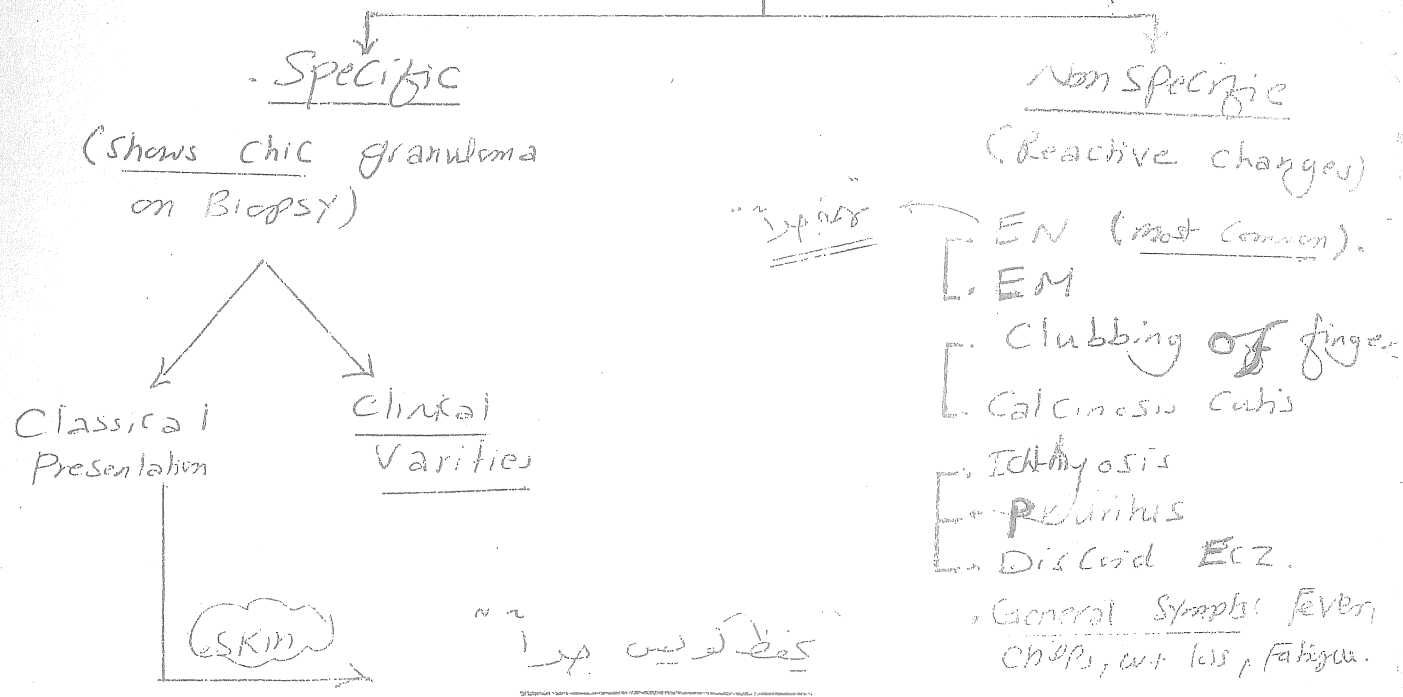 Specific
(shows chic granuloma
on Biopsy)
Classical
Presentation
Clinical
Varities
skin
Non Specific
(Reactive changes)
EN (most Common).
EM
Clubbing of finger
Calcinosis Cutis
Ichthyosis
Pruritus
Discoid ECZ.
General Sympts: Fever,
chills, wt loss, Fatigue.
"يحفظ كويس جداً"